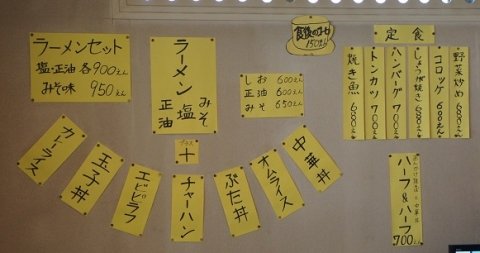 ラーメンセット
塩・正油 各900えん
みそ味 950えん
ラーメン
みそ
塩
正油
食後のみ
150えん
しお 600えん
正油 600えん
みそ 650えん
定食
野菜炒め 680えん
コロッケ 600えん
しょうが焼き 680えん
ハンバーグ 700えん
トンカツ 700えん
焼き魚 680えん
プラス
+
カレーライス
玉子丼
エビピラフ
チャーハン
ぶた丼
オムライス
中華丼
ハーフ&ハーフ
700えん